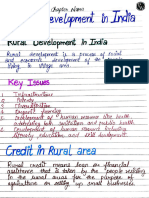 Chapter Name
Development In India
Rural Development In India
Rural development is a process of social
and economic development of the
living in village area.
Key Issues
Infrastructure
Poverty
Diversification
Organic farming
Development of human resource like health
Sanitation both sanitation and public health.
Development of human resource including
literacy, education, and skill development
Credit In Rural area
Rural credit means loan or financial
assistance that is taken by the people settling
in the rural areas for the purpose of
agriculture or setting up small businesses.